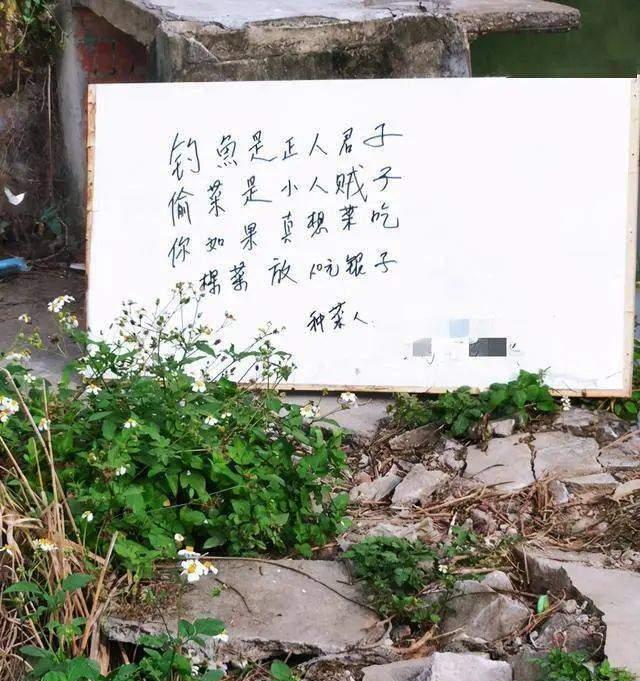 钓魚是正人君子
偷菜是小人贼子
你如果真想菜吃
棵菜放10元银子
种菜人